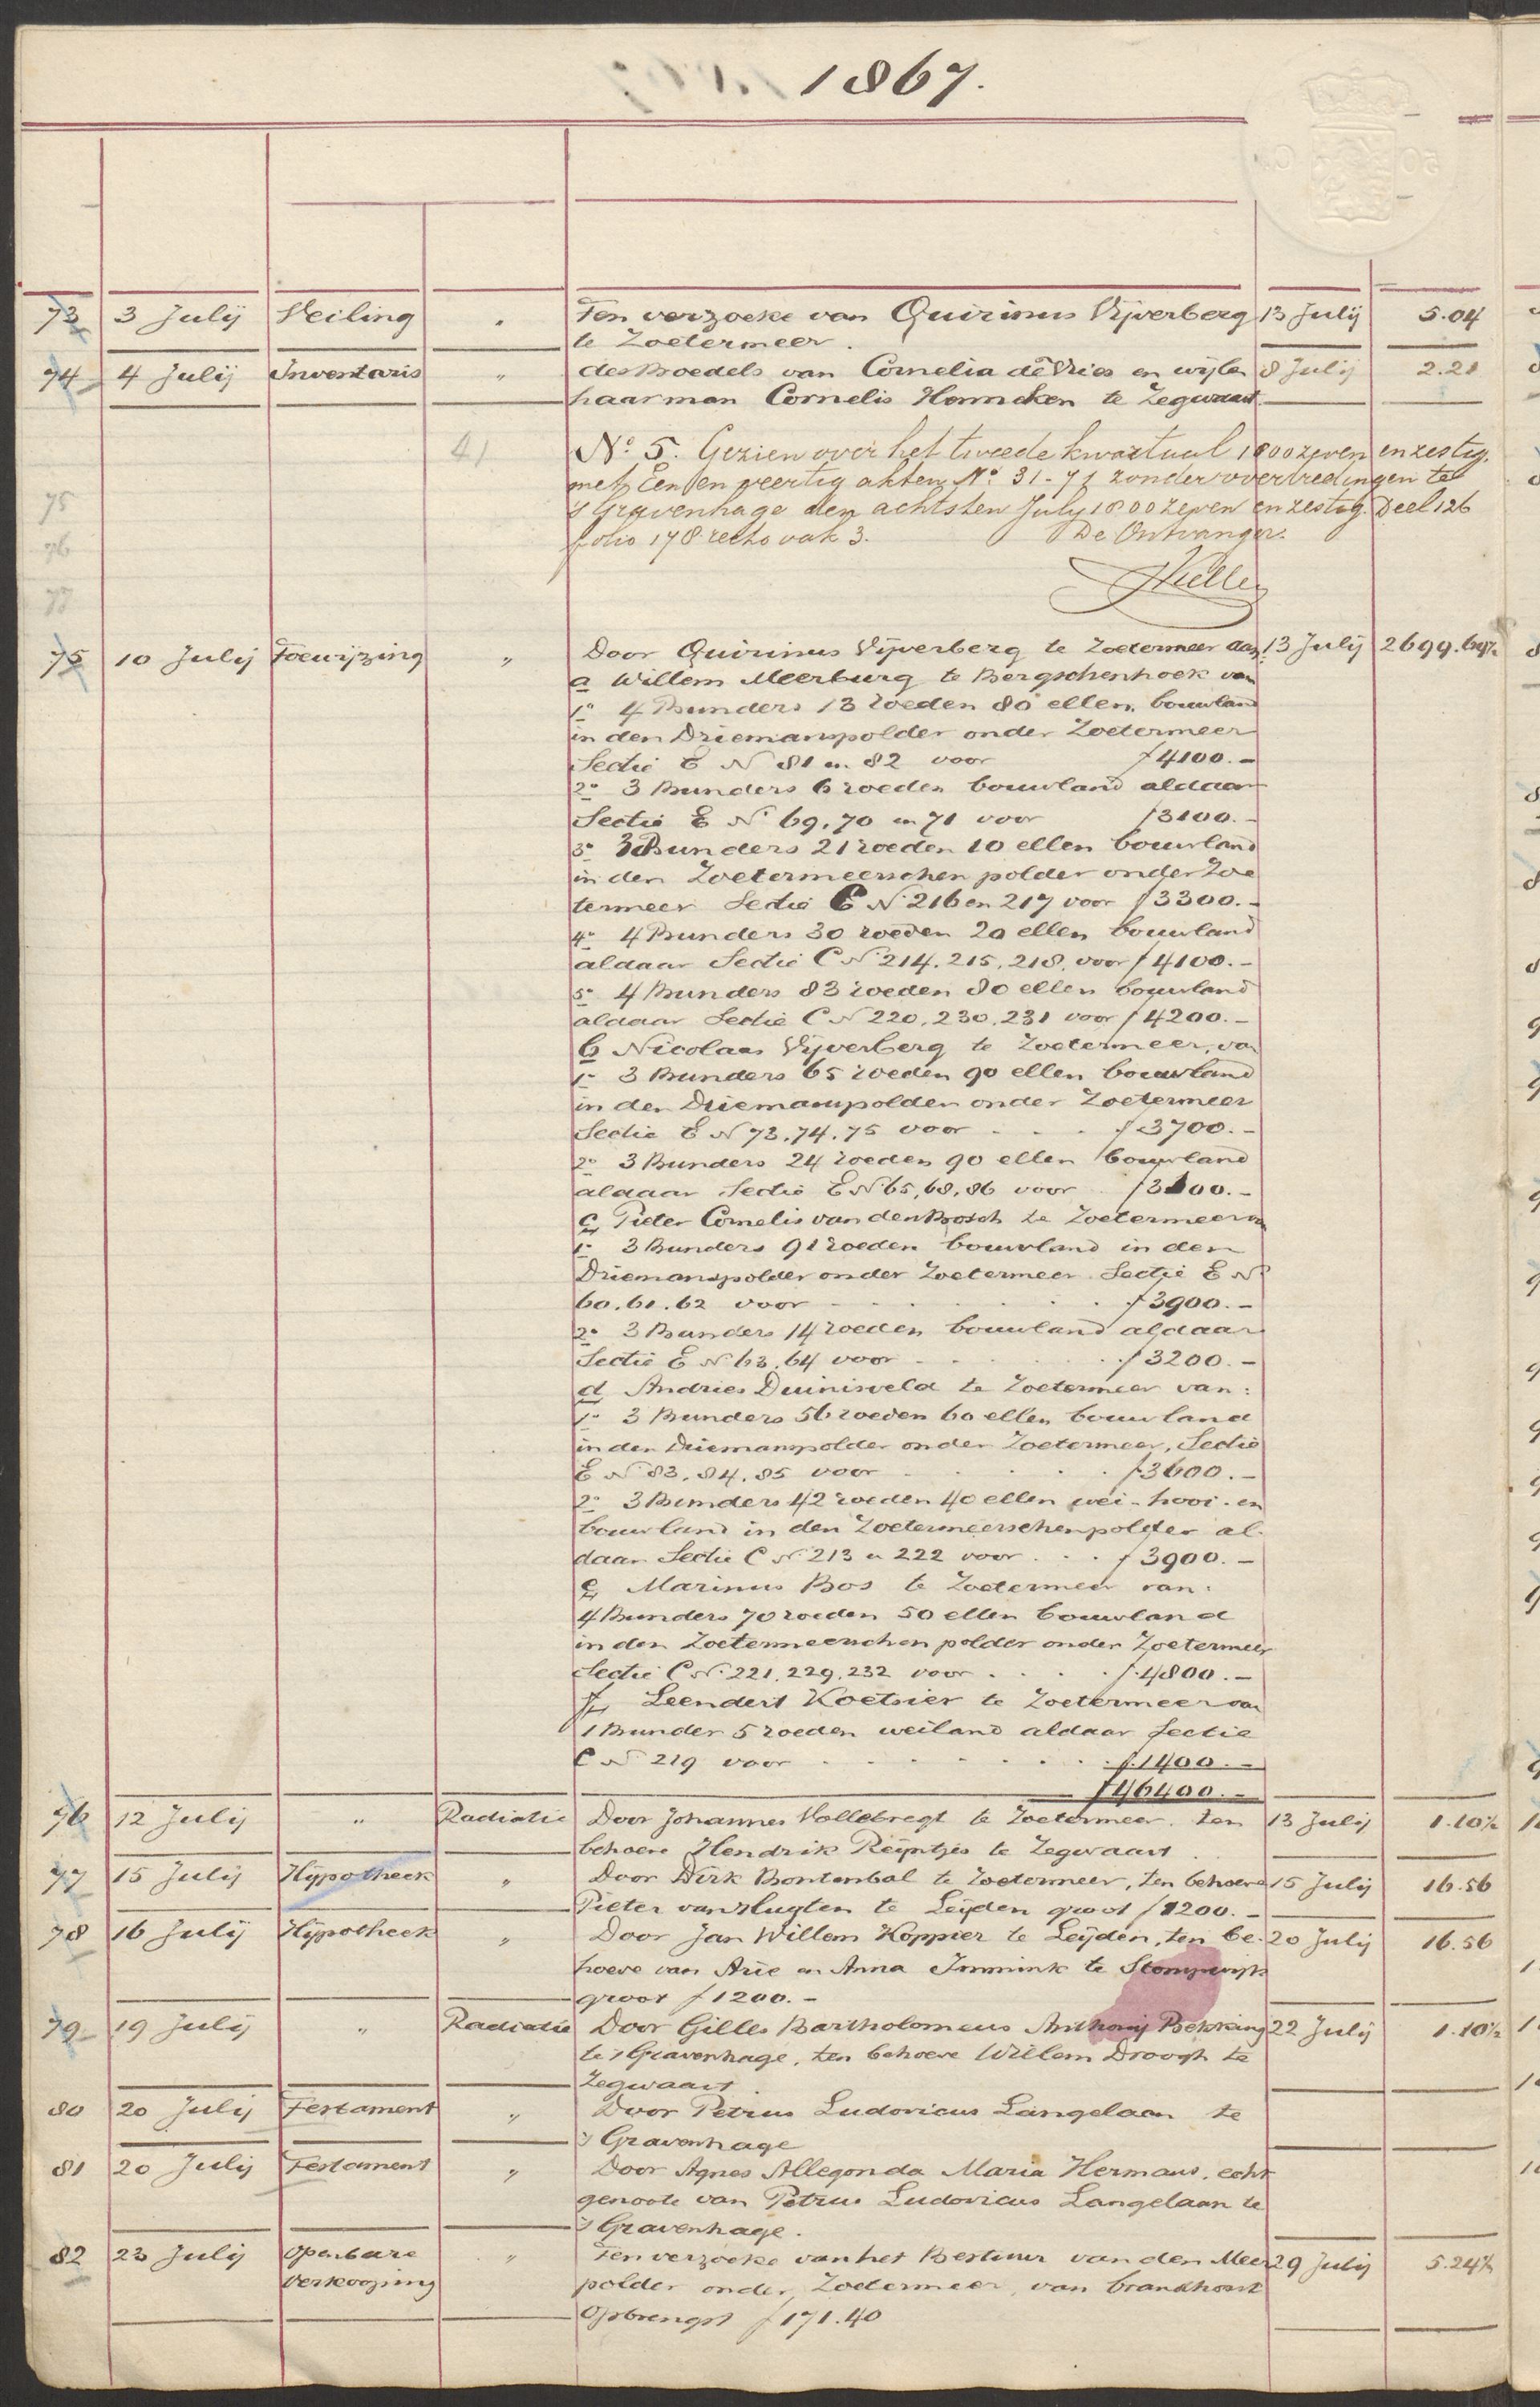 1867.
73 3 Julij Veiling " Ten verzoeke van Quirinus Vijverberg 13 Julij 5.04
te Zoetermeer.
74 4 Julij Inventaris " des Boedels van Cornelia de Vries en wijlen 8 Julij 2.21
haar man Cornelis Honneken te Zegwaart.
41 No. 5. Gezien over het tweede kwartaal 1800 zeven en zestig,
met Een en veertig akten No. 31-71 zonder overtredingen te
75 's Gravenhage den achtsten July 1800 zeven en zestig. Deel 126
76 folio 178 recto vak 3. De Ontvanger.
77
75 10 Julij Toewijzing " Door Quirinus Vijverberg te Zoetermeer aan 13 Julij 2699.69½
a Willem Meerburg te Bergschenhoek van
1o 4 Bunders 13 roeden 80 ellen bouwland
in den Driemanspolder onder Zoetermeer
Sectie E No 81 en 82 voor f 4100.-
2o 3 Bunders 6 roeden bouwland aldaar
Sectie E No 69, 70 en 71 voor f 3100.-
3o 3 Bunders 21 roeden 10 ellen bouwland
in den Zoetermeerschen polder onder Zoe
termeer Sectie C No 216 en 217 voor f 3300.-
4o 4 Bunders 30 roeden 20 ellen bouwland
aldaar Sectie C No 214. 215. 218. voor f 4100.-
5o 4 Bunders 83 roeden 80 ellen bouwland
aldaar Sectie C No 220, 230, 231 voor f 4200.-
b Nicolaas Vijverberg te Zoetermeer, van
1o 3 Bunders 65 roeden 90 ellen bouwland
in den Driemanspolder onder Zoetermeer
Sectie E No 73, 74, 75 voor f 3700.-
2o 3 Bunders 24 roeden 90 ellen bouwland
aldaar Sectie E No 65, 68, 86 voor f 3100.-
c Pieter Cornelis van den Bosch te Zoetermeer van
1o 3 Bunders 91 roeden bouwland in den
Driemanspolder onder Zoetermeer Sectie E No
60. 61. 62 voor f 3900.-
2o 3 Bunders 14 roeden bouwland aldaar
Sectie E No 63, 64 voor f 3200.-
d Andries Duinisveld te Zoetermeer van:
1o 3 Bunders 56 roeden 60 ellen bouwland
in den Driemanspolder onder Zoetermeer, Sectie
E No 83. 84. 85 voor f 3600.-
2o 3 Bunders 42 roeden 40 ellen wei- hooi- en
bouwland in den Zoetermeerschenpolder al-
daar Sectie C No 213 en 222 voor f 3900.-
e Marinus Bos te Zoetermeer van:
4 Bunders 70 roeden 50 ellen bouwland
in den Zoetermeerschen polder onder Zoetermeer
Sectie C No 221. 229. 232 voor f 4800.-
f Leendert Koetsier te Zoetermeer van
1 Bunder 5 roeden weiland aldaar Sectie
C No 219 voor f 1400.-
f 46400.-
76 12 Julij " Radiatie Door Johannes Hollebregt te Zoetermeer, ten 13 Julij 1.10½
behoeve Hendrik Reijntjes te Zegwaart.
77 15 Julij Hypotheek " Door Dirk Bontenbal te Zoetermeer, ten behoeve 15 Julij 16.56
Pieter van Vlugten te Leijden groot f 1200.-
78 16 Julij Hypotheek " Door Jan Willem Koppier te Leijden, ten be- 20 Julij 16.56
hoeve van Arie en Anna Immink te Stompwijk
groot f 1200.-
79 19 Julij " Radiatie Door Gilles Bartholomeus Anthonij Bekking 22 Julij 1.10½
te 's Gravenhage, ten behoeve Willem Droogh te
Zegwaart.
80 20 Julij Testament " Door Petrus Ludovicus Langelaan te
's Gravenhage
81 20 Julij Testament " Door Agnes Allegonda Maria Hermans, echt
genoote van Petrus Ludovicus Langelaan te
's Gravenhage.
82 23 Julij Openbare " Ten verzoeke van het Bestuur van den Meer 29 Julij 5.24½
Verkooping polder onder Zoetermeer, van brandhout
Opbrengst f 171.40